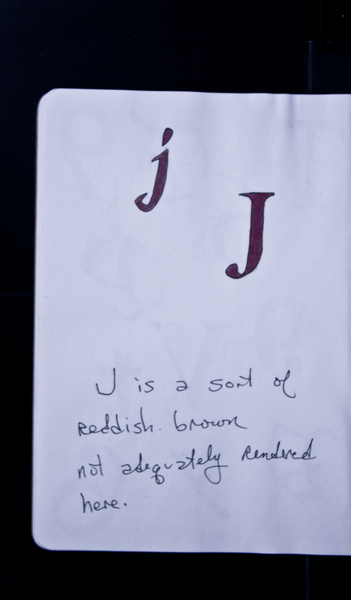 j
J
J is a sort of
reddish. brown
not adequately rendered
here.